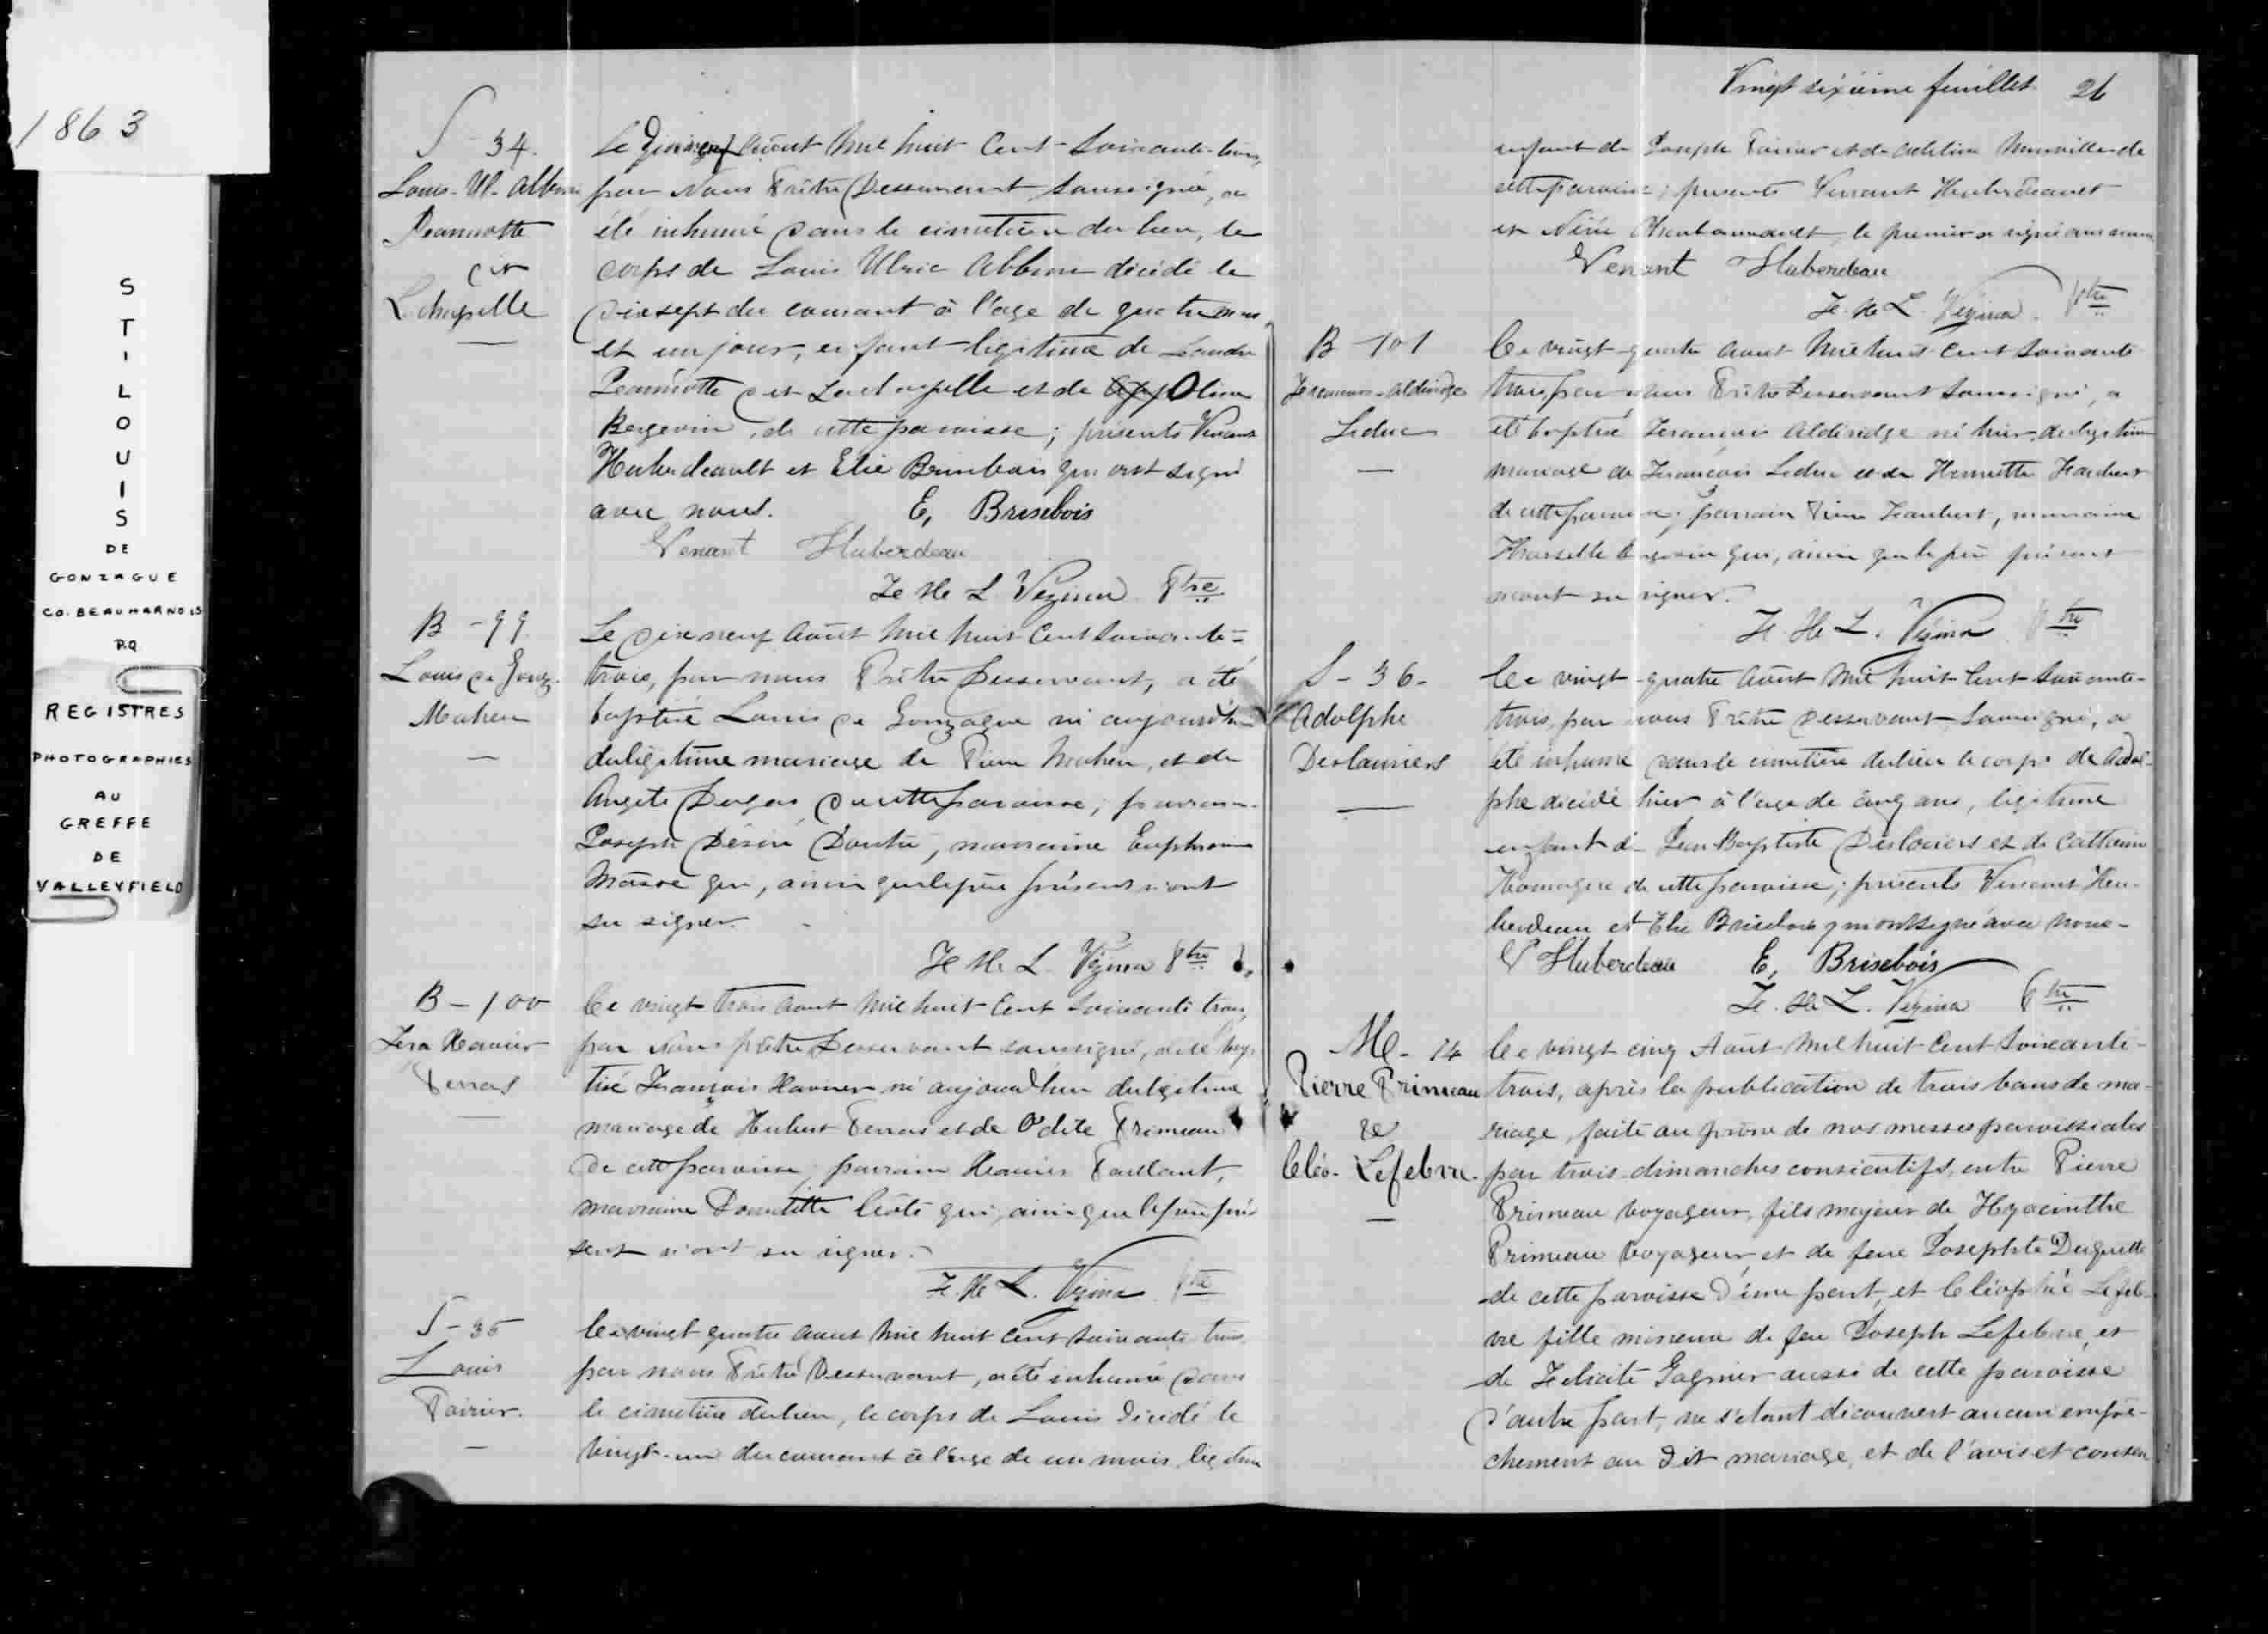 1863
ST. LOUIS
DE
GONZAGUE
CO. BEAUHARNOIS
P.Q
REGISTRES
PHOTOGRAPHIES
AU
GREFFE
DE
VALLEYFIELD
S - 34.
Louis-Ul. Albини
Jeannotte
dit
Lchapelle
Le dixneuf Août mil huit Cent-Soixante-trois,
par Nous Prêtre Desservant Soussigné, a
été inhumé dans le cimetière du lieu, le
corps de Louis Ulric décédé le
dixsept du courant à l'age de quatre mois
et un jour, enfant légitime de
Jeannotte dit Lachapelle et de Olive
Bergevin, de cette paroisse; présents Venant
Huberdeault et Elie Brisebois qui ont signé
avec nous. E, Brisebois
Venant Huberdeau
F H L Vézina Ptre
B - 99
Louis de Gonz.
Maheu
Le dix neuf Août mil huit Cent soixante-
trois, par nous Prêtre Desservant, a été
baptisé Louis de Gonzague né aujourd'hui
du légitime mariage de Pierre Maheu, et de
Angele Dugas de cette paroisse; parrain
Joseph Désiré Doutre, marraine Euphrosine
Masse qui, ainsi que le père présent n'ont
su signer.
F H L Vézina Ptre
B - 100
Fra Xavier
Perras
Ce vingt trois aout mil huit Cent Soixante trois,
par Nous prêtre Desservant soussigné, a été bap
tisé François Xavier né aujourd'hui du légitime
mariage de Hubert Perras et de Odile Primeau
de cette paroisse, parrain Xavier
marraine Domitille Coté qui, ainsi que le père pré
sent n'ont su signer.
F. H L. Vézina Ptre
S - 35
Louis
Poirier.
Ce vingt quatre aout mil huit Cent Soixante trois
par nous Prêtre Desservant, a été inhumé dans
le cimetière du lieu, le corps de Louis décédé le
vingt-un du courant à l'age de un mois, légitime
Vingt sixième feuillet 26
enfant de Joseph Poirier et de
cette paroisse; présents Venant Huberdeault
et le premier a signé avec nous
Venant Huberdeau
F. H L. Vézina. Ptre
B - 101
Leduc
Ce vingt-quatre aout mil huit Cent Soixante
trois par nous Prêtre Desservant Soussigné, a
été baptisé né hier, du légitime
mariage de François Leduc et de Henriette
de cette paroisse; parrain Pierre marraine
qui, ainsi que le père présent
n'ont su signer.
F. H L. Vézina Ptre
S - 36 -
Adolphe
Deslauriers
Ce vingt-quatre Août mil huit Cent Soixante-
trois, par nous Prêtre Desservant Soussigné, a
été inhumé dans le cimetière du lieu le corps de Adol-
phe décédé hier à l'age de cinq ans, légitime
enfant de Jean Baptiste Deslauriers et de
de cette paroisse; présents Venant Hu-
berdeau et Elie Brisebois qui ont signé avec nous -
V Huberdeau E, Brisebois
F. H L. Vézina Ptre
M - 14
Pierre Primeau
&
Cléo. Lefebvre.
Ce vingt cinq Août mil huit Cent Soixante-
trois, après la publication de trois bans de ma-
riage, faite au prône de nos messes paroissiales
par trois dimanches consécutifs, entre Pierre
Primeau voyageur, fils majeur de Hyacinthe
Primeau voyageur, et de feue Josephte Duquette
de cette paroisse d'une part, et Cléophée Lefeb-
vre fille mineure de feu Joseph Lefebvre, et
de Félicité Gagnier aussi de cette paroisse
d'autre part, ne s'étant découvert aucun empê-
chement au dit mariage, et de l'avis et consen